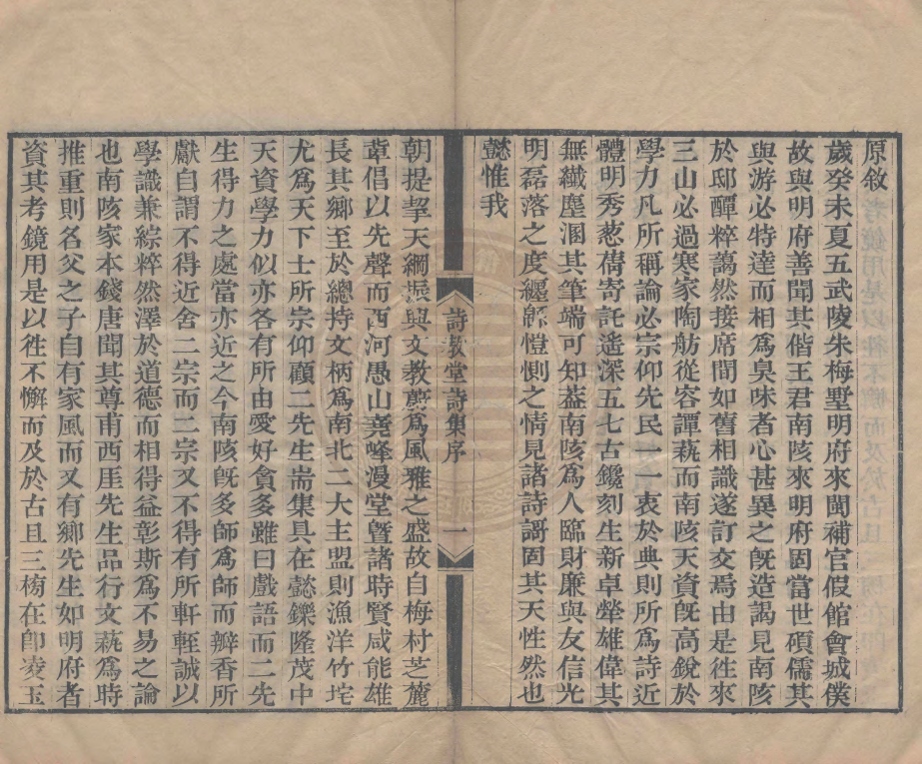 原敘
歲癸未夏五武陵朱梅墅明府來閩補官假館會城僕
故與明府善聞其偕王君南陔來明府固當世碩儒其
與游必特達而相爲臭味者心甚異之旣造謁見南陔
於邸醰粹藹然接席間如舊相識遂訂交焉由是徃來
三山必過寒家陶舫從容譚蓺而南陔天資旣高銳於
學力凡所稱論必宗仰先民一一衷於典則所爲詩近
體明秀蔥蒨寄託遙深五七古鑱刻生新卓犖雄偉其
無纎塵溷其筆端可知葢南陔爲人臨財廉與友信光
明磊落之度纒緜愷惻之情見諸詩謌固其天性然也
懿惟我
詩教堂詩集序
一
朝提挈天綱振興文教蔚爲風雅之盛故自梅村芝麓
輩倡以先聲而西河愚山堯峰漫堂曁諸時賢咸能雄
長其鄉至於總持文柄爲南北二大主盟則漁洋竹垞
尤爲天下士所宗仰顧二先生耑集具在懿鑠隆茂中
天資學力似亦各有所由愛好貪多雖曰戲語而二先
生得力之處當亦近之今南陔旣多師爲師而瓣香所
獻自謂不得近舍二宗而二宗又不得有所軒輊誠以
學識兼綜粹然澤於道德而相得益彰斯爲不易之論
也南陔家本錢唐聞其尊甫西厓先生品行文蓺爲時
推重則名父之子自有家風而又有鄉先生如明府者
資其考鏡用是以徃不懈而及於古且三楘在卽凌玉